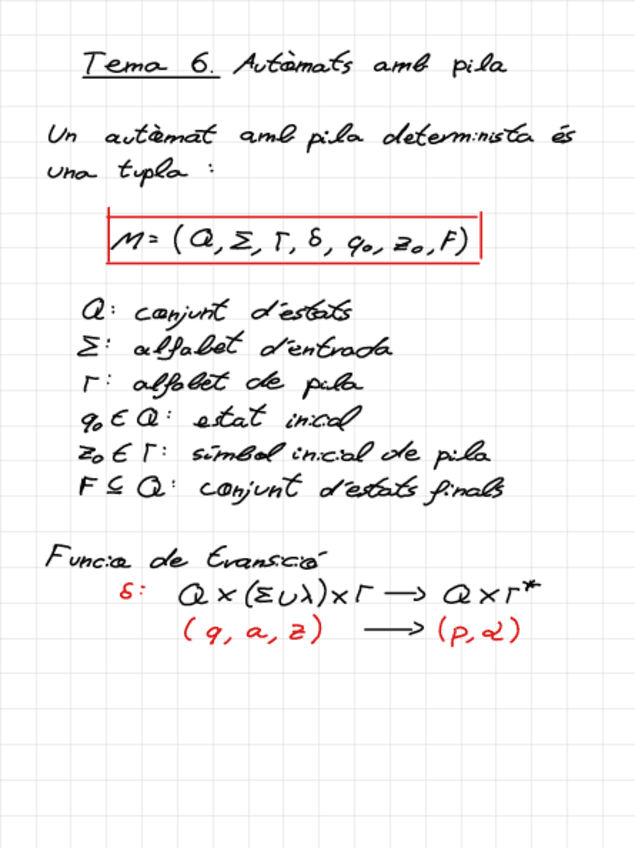 Tema 6. Autòmats amb pila
Un autòmat amb pila determinista és
una tupla :
M = (Q, Σ, Γ, δ, q₀, z₀, F)
Q: conjunt d'estats
Σ: alfabet d'entrada
Γ: alfabet de pila
q₀ ∈ Q: estat inicial
z₀ ∈ Γ: símbol inicial de pila
F ⊆ Q: conjunt d'estats finals
Funcio de transició
δ: Q × (Σ ∪ λ) × Γ → Q × Γ*
(q, a, z) → (p, α)